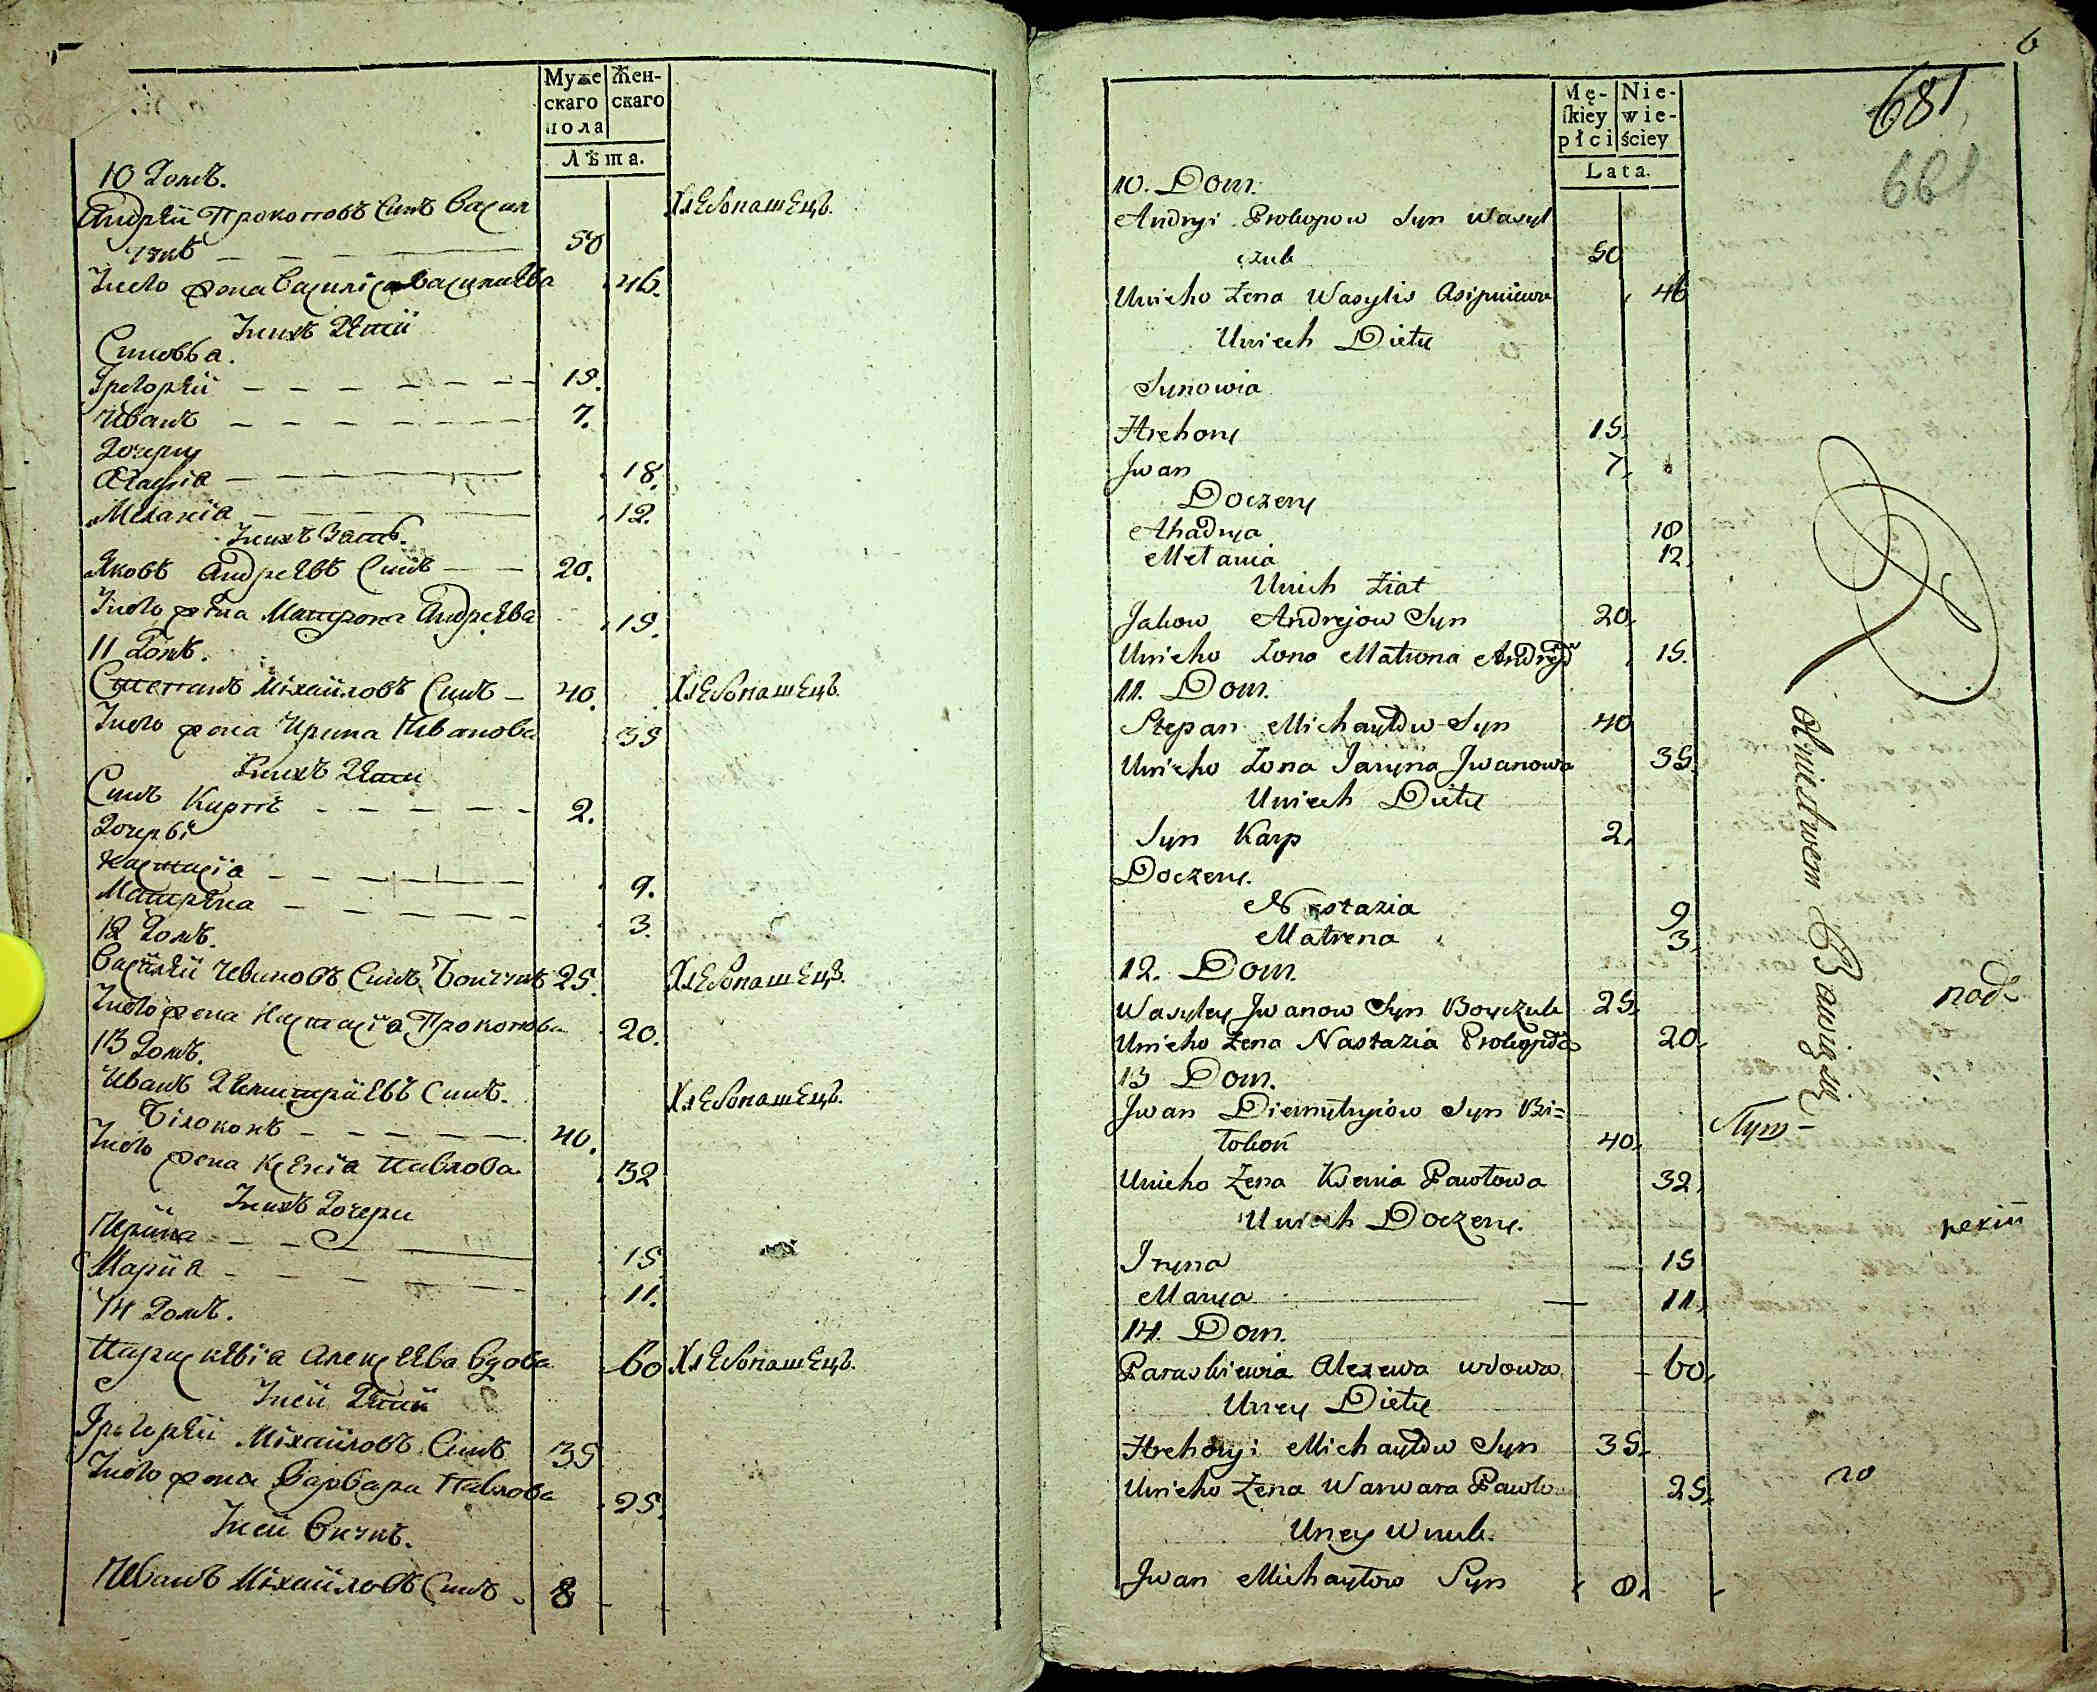 Муже
скаго
пола
Жен-
скаго
Лѣта.
10 Домъ.
Андрѣй Прокоповъ Синъ Васил
чукъ 50 Хлебопашецъ.
Унего жона Васил 46.
Унихъ Дѣтій
Синовья.
Грегорѣй 15.
Иванъ 7.
Дочеры
Агафія 18.
Меланія 12.
Унихъ Зать.
Яковъ Андреевъ Синъ 20.
Унего жена Матрона Андреева 15.
11 Домъ.
Степанъ Михайловъ Синъ 40. Хлебопашецъ.
Унего жона Ирина Иванова 35
Унихъ Дѣти
Синъ Карпъ 2.
Дочерьи
Настасія 9.
Матрена 3.
12 Домъ.
Василѣй Ивановъ Синъ Бойчукъ 25. Хлебопашецъ.
Унего жена Настасіа Прокопова 20.
13 Домъ.
Иванъ Дѣмитріевъ Синъ. Хлебопашецъ.
Білоконь 40.
Унего жена Ксенія Павлова 32
Унихъ Дочери
Ирина 15
Марія 11.
14 Домъ.
Параскевія Алексеева Вдова 60 Хлебопашецъ.
Уней Дѣтій
Грегорѣй Михайловъ Синъ 35
Унего жона Варвара Павлова 25.
Уней Внукъ.
Иванъ Михайловъ Синъ 8
6
681
681
Mę-
ſkiey
płci
Nie-
wie-
ściey
Lata.
10. Dom.
Andryi Prokopow Syn Wasyl
czuk 50
Unieho Żena Wasylis Asipniewa 46
Uniech Diety
Synowia
Hrehory 15.
Jwan 7.
Doczery
Ahadya 18
Melania 12.
Unich Ziat
Jakow Andrejow Syn 20.
Unieho Żona Matrona Andrejo 15.
11. Dom.
Stepan Michayłow Syn 40
Unieho Żona Jaryna Jwanowa 35.
Uniech Diety
Syn Karp 2.
Doczery.
Nastazia 9
Matrena 3.
12. Dom.
Wasyley Jwanow Syn Boyczuk 25.
Unieho Żena Nastazia Prokopow 20.
13 Dom.
Jwan Diemytryiow Syn Bi=
łokoń 40.
Unieho Żena Ksenia Pawłowa 32.
Uniech Doczery.
Iryna 15
Marya 11.
14. Dom.
Paraskiewia Alexewa wdowa 60.
Uney Diety
Hrehoryi Michayłow Syn 35.
Unieho Żena Warwara Pawło 25.
Uney Wnuk.
Jwan Michayłow Syn 8.